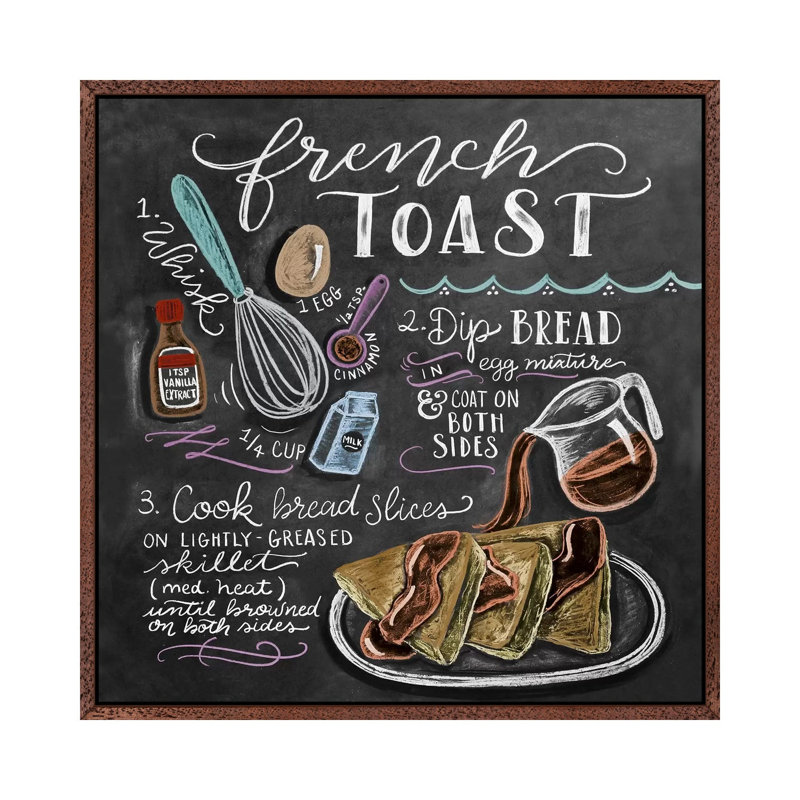 french
TOAST
1. Whisk
1 EGG
1/2 TSP.
CINNAMON
1 TSP
VANILLA
EXTRACT
1/4 CUP
MILK
2. Dip BREAD
IN egg mixture
& COAT ON
BOTH
SIDES
3. Cook bread slices
ON LIGHTLY-GREASED
skillet
(med. heat)
until browned
on both sides